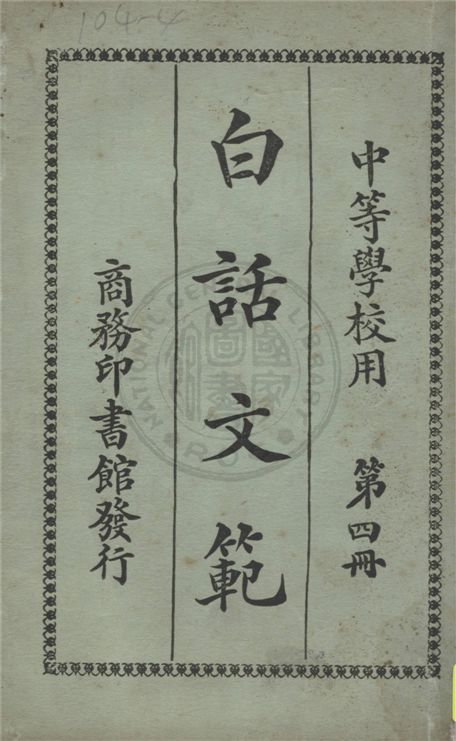 104-4
中等學校用 第四冊
白話文範
商務印書館發行
NATIONAL CENTRAL LIBRARY
國家圖書